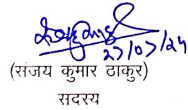 23/07/24
(संजय कुमार ठाकुर)
सदस्य